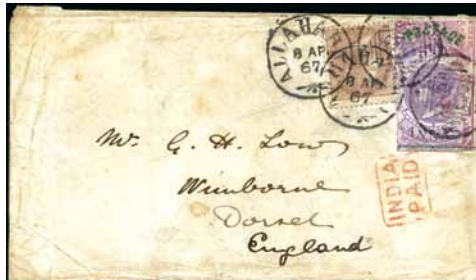 ALLAHA
8 AP
67
8 AP
67
POSTAGE
Mr. G. H. Low
Wimborne
Dorset
England
INDIA
PAID